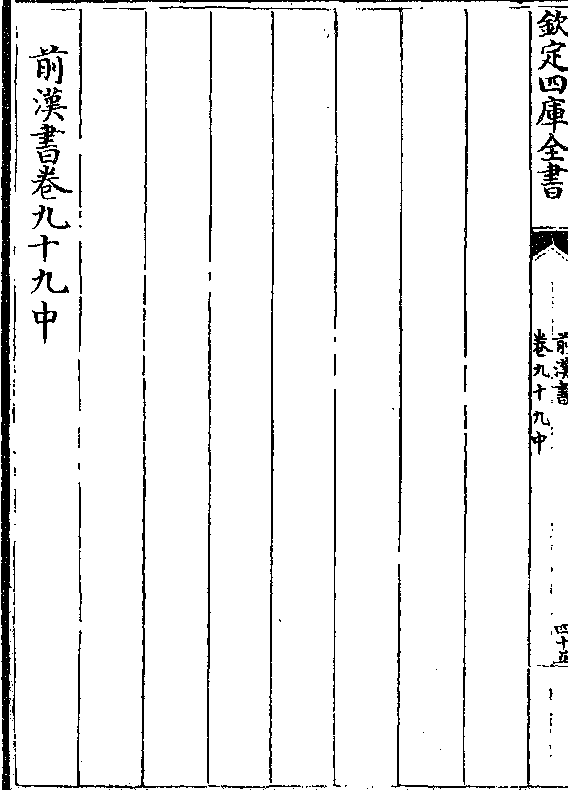 欽定四庫全書
前漢書
卷九十九中
四十五
前漢書卷九十九中